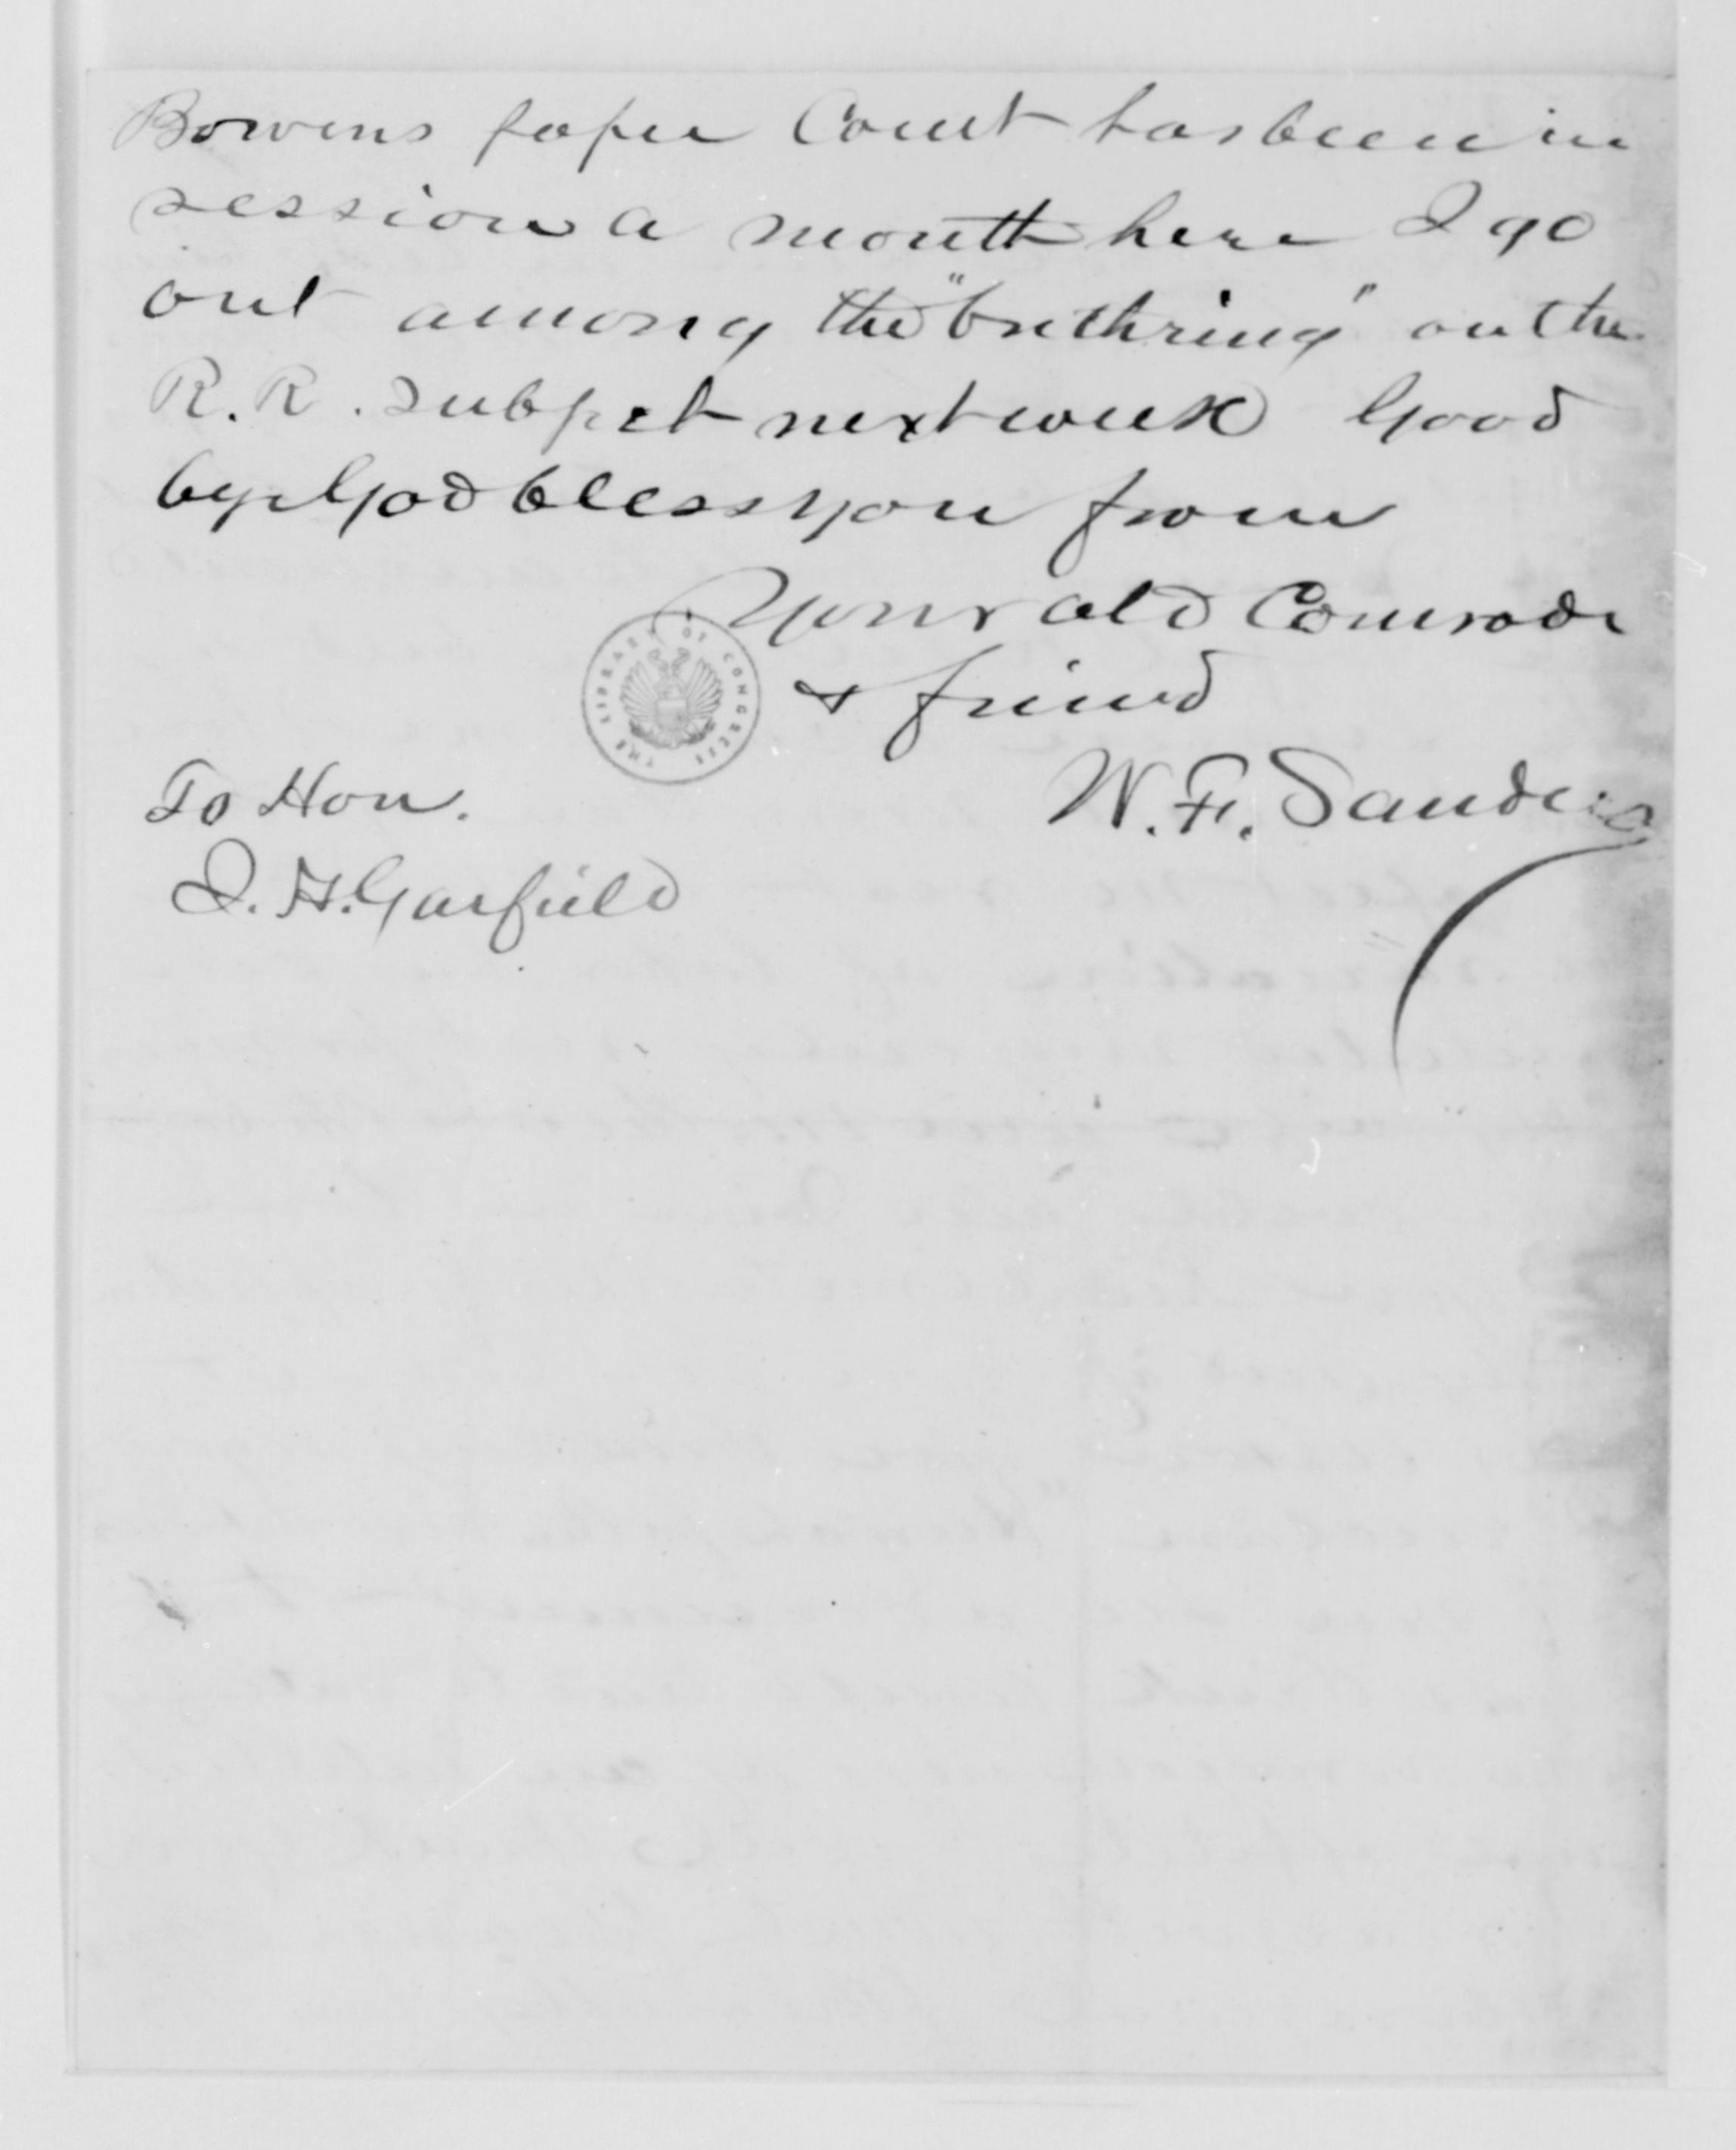 Bowens paper Court has been in
session a month here I go
out among the "brethring" on the
R. R. subject next week Good
bye God bless you from
Your old Comrade
& friend
W. F. Sanders
To Hon.
J. H. Garfield
THE LIBRARY OF CONGRESS